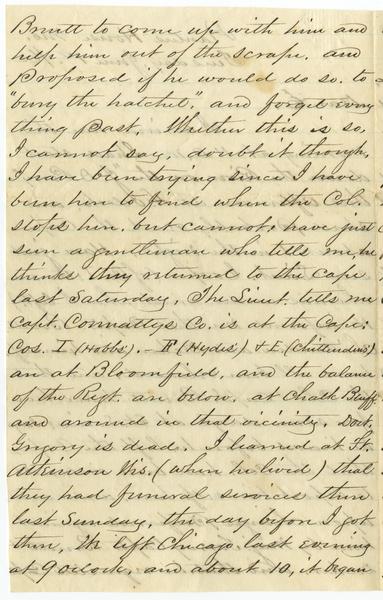 Brnitt to come up with him and
help him out of the scrape, and
proposed if he would do so, to
"bury the hatchet", and forget every
thing past. Whether this is so,
I cannot say, doubt it though,
I have been trying since I have
been here to find where the Col.
stops here, but cannot, have just
seen a gentleman who tells me he
thinks they returned to the Cape
last Saturday. The Lieut. tells me
Capt. Connattys Co. is at the Cape;
Cos. I (Hobbs). - F (Hydes) & E. (Chittendens)
are at Bloomfield, and the balance
of the Regt. are below, at Chalk Bluff
and around in that vicinity. Doct.
Gregory is dead. I learned at Ft.
Atkinson Wis. (where he lived) that
they had funeral services there
last Sunday, the day before I got
there, We left Chicago last evening
at 9 oclock, and about 10, it began